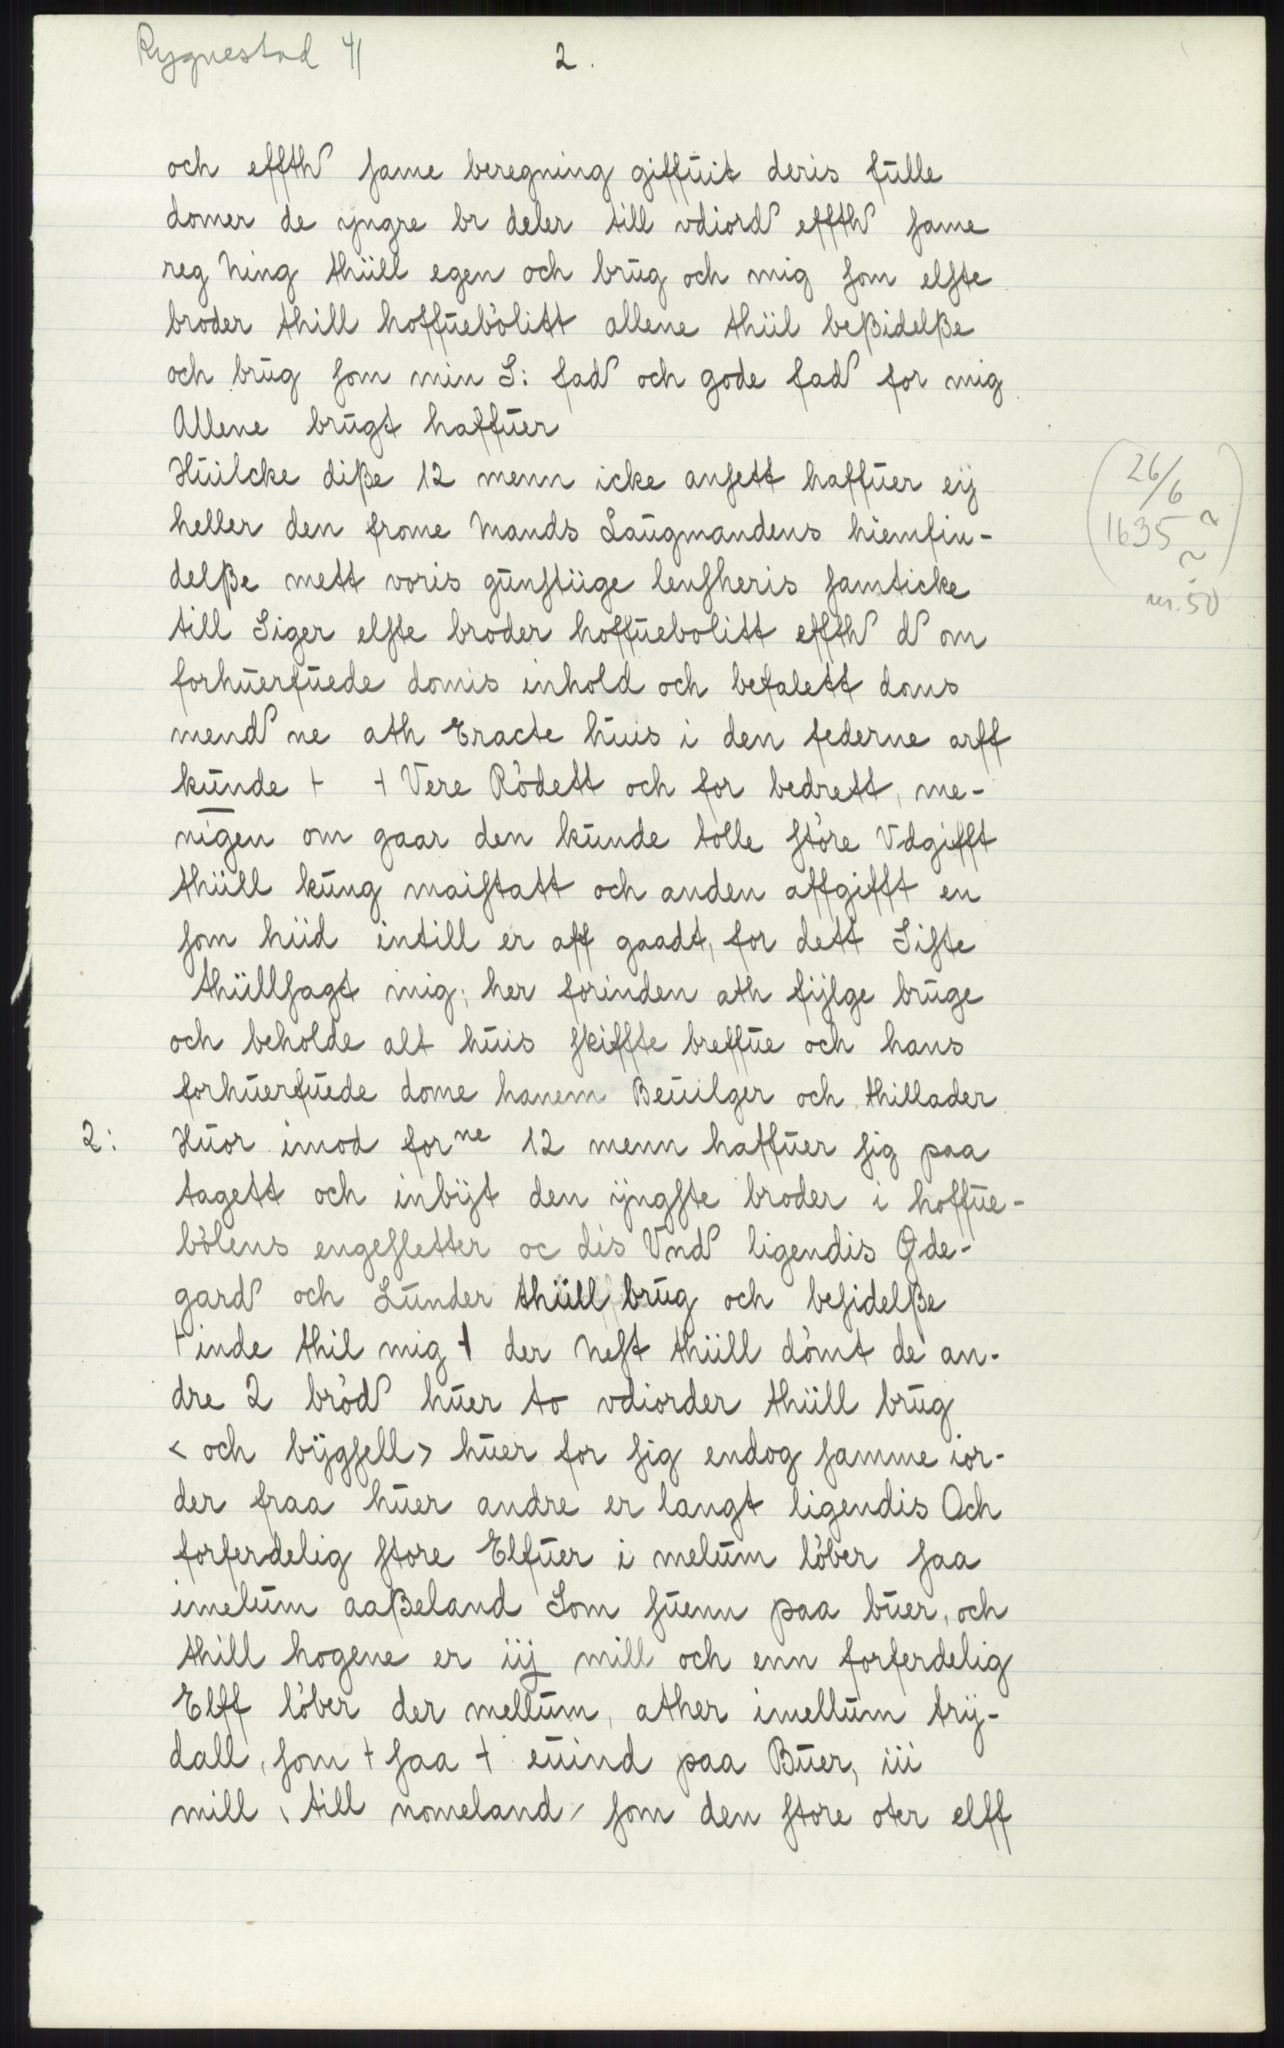 Rygnestad 41
2.
och effthꝭ same beregning giffuit deris fulle
domer de yngre br deler till vdiordꝭ effthꝭ same
reg Ning thiill egen och brug och mig som elste
broder thill hoffuebolitt allene thiil beßidelße
och brug som min S: fadꝭ och gode fadꝭ for mig
Allene brugt haffuer
Huilcke diße 12 menn icke ansett haffuer eÿ
heller den frome Mands Laugmandens hiemfin-
delße mett voris gunstiige lensheris samticke
till Siger elste broder hoffuebolitt effthꝭ dꝭ om
forhuerfuede domis inhold och befalett dans
mendꝭ ne ath Eracte huis i den federne arff
kunde + + Vere Rödett och for bedrett, me-
nigen om gaar den kunde tolle störe Vdgifft
thiill kung maistatt och anden affgifft en
som hiid intill er aff gaadt, for dett Siste
thiillsagt mig, her forinden ath fÿlge bruge
och beholde alt huis skiffte breffue och hans
forhuerfuede dome hanem Beuilger och thillader
2: Huor imod forne 12 menn haffuer sig paa
tagett och inbÿt den ÿngste broder i hoffue-
bölens engesletter oc des Vndꝭ ligendis Øde-
gardꝭ och Lunder thiill brug och besidelße
+ inde thil mig + der Nest thiill dömt de an-
dre 2 brödꝭ huer to vdiorder thiill brug
< och bÿgsell > huer for sig endog samme ior-
der fraa huer andre er langt ligendis Och
forferdelig store Elfuer i melum löber saa
imelum aaßeland Som suenn paa buer, och
thill hogene er iij mill och enn forferdelig
Elff löber der mellum, ather imellum trÿ-
dall, som + saa + euind paa Buer, iii
mill, till nomeland / som den store oter elff
(26/6
1635 ~
~)
nr. 50